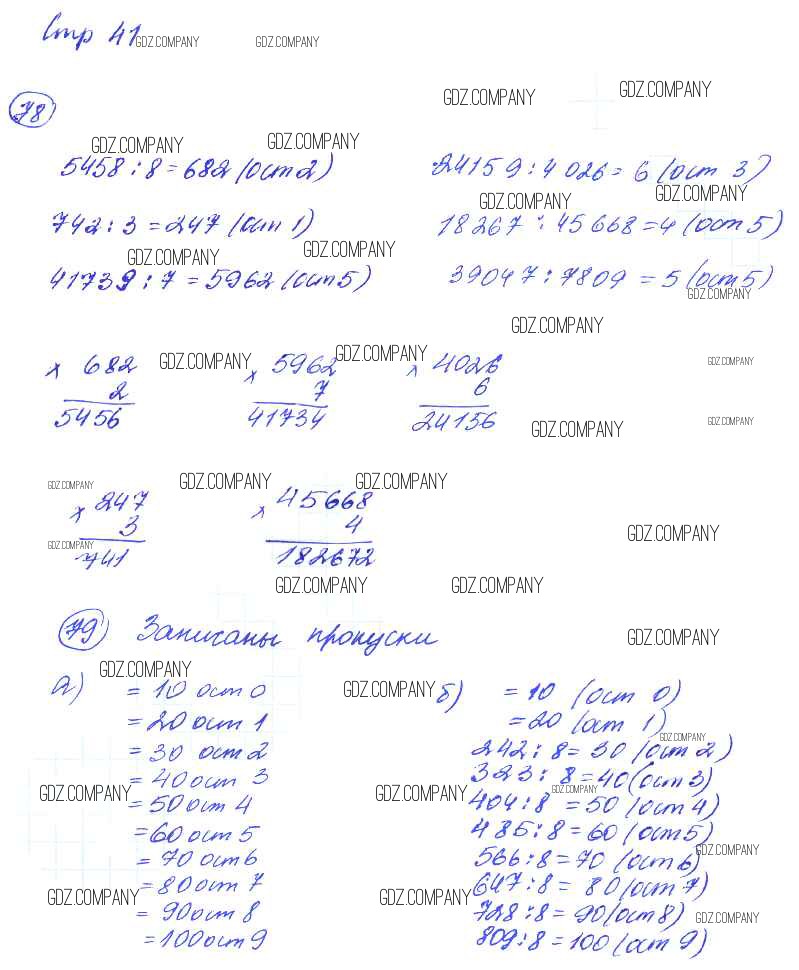 Стр 41
GDZ.COMPANY GDZ.COMPANY
78
GDZ.COMPANY GDZ.COMPANY
GDZ.COMPANY GDZ.COMPANY
5458 : 8 = 682 (ост 2)
24159 : 4026 = 6 (ост 3)
GDZ.COMPANY GDZ.COMPANY
742 : 3 = 247 (ост 1)
18267 : 45668 = 4 (ост 5)
GDZ.COMPANY GDZ.COMPANY
41739 : 7 = 5962 (ост 5)
39047 : 7809 = 5 (ост 5)
GDZ.COMPANY
GDZ.COMPANY
GDZ.COMPANY GDZ.COMPANY GDZ.COMPANY
× 682
2
5456
× 5962
7
41734
× 4026
6
24156
GDZ.COMPANY GDZ.COMPANY
GDZ.COMPANY GDZ.COMPANY GDZ.COMPANY
× 247
3
741
× 45668
4
182672
GDZ.COMPANY GDZ.COMPANY
GDZ.COMPANY GDZ.COMPANY
79 Записаны пропуски
GDZ.COMPANY
GDZ.COMPANY GDZ.COMPANY
а)
= 10 ост 0
= 20 ост 1
= 30 ост 2
= 40 ост 3
= 50 ост 4
= 60 ост 5
= 70 ост 6
= 80 ост 7
= 90 ост 8
= 100 ост 9
б)
= 10 (ост 0)
= 20 (ост 1)
242 : 8 = 30 (ост 2)
323 : 8 = 40 (ост 3)
404 : 8 = 50 (ост 4)
485 : 8 = 60 (ост 5)
566 : 8 = 70 (ост 6)
647 : 8 = 80 (ост 7)
728 : 8 = 90 (ост 8)
809 : 8 = 100 (ост 9)
GDZ.COMPANY
GDZ.COMPANY GDZ.COMPANY GDZ.COMPANY
GDZ.COMPANY
GDZ.COMPANY GDZ.COMPANY GDZ.COMPANY